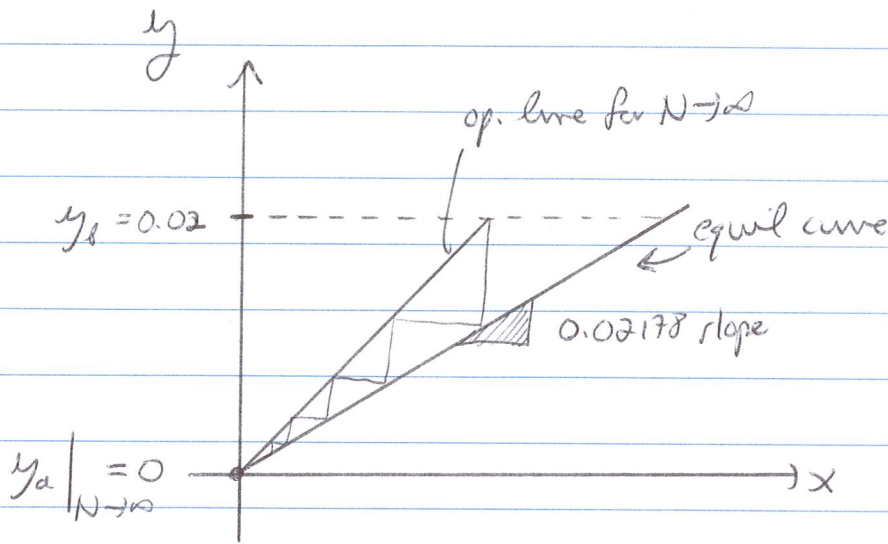 y
op. line for N→∞
y_b = 0.02
equil curve
0.02178 slope
y_a|_{N→∞} = 0
x